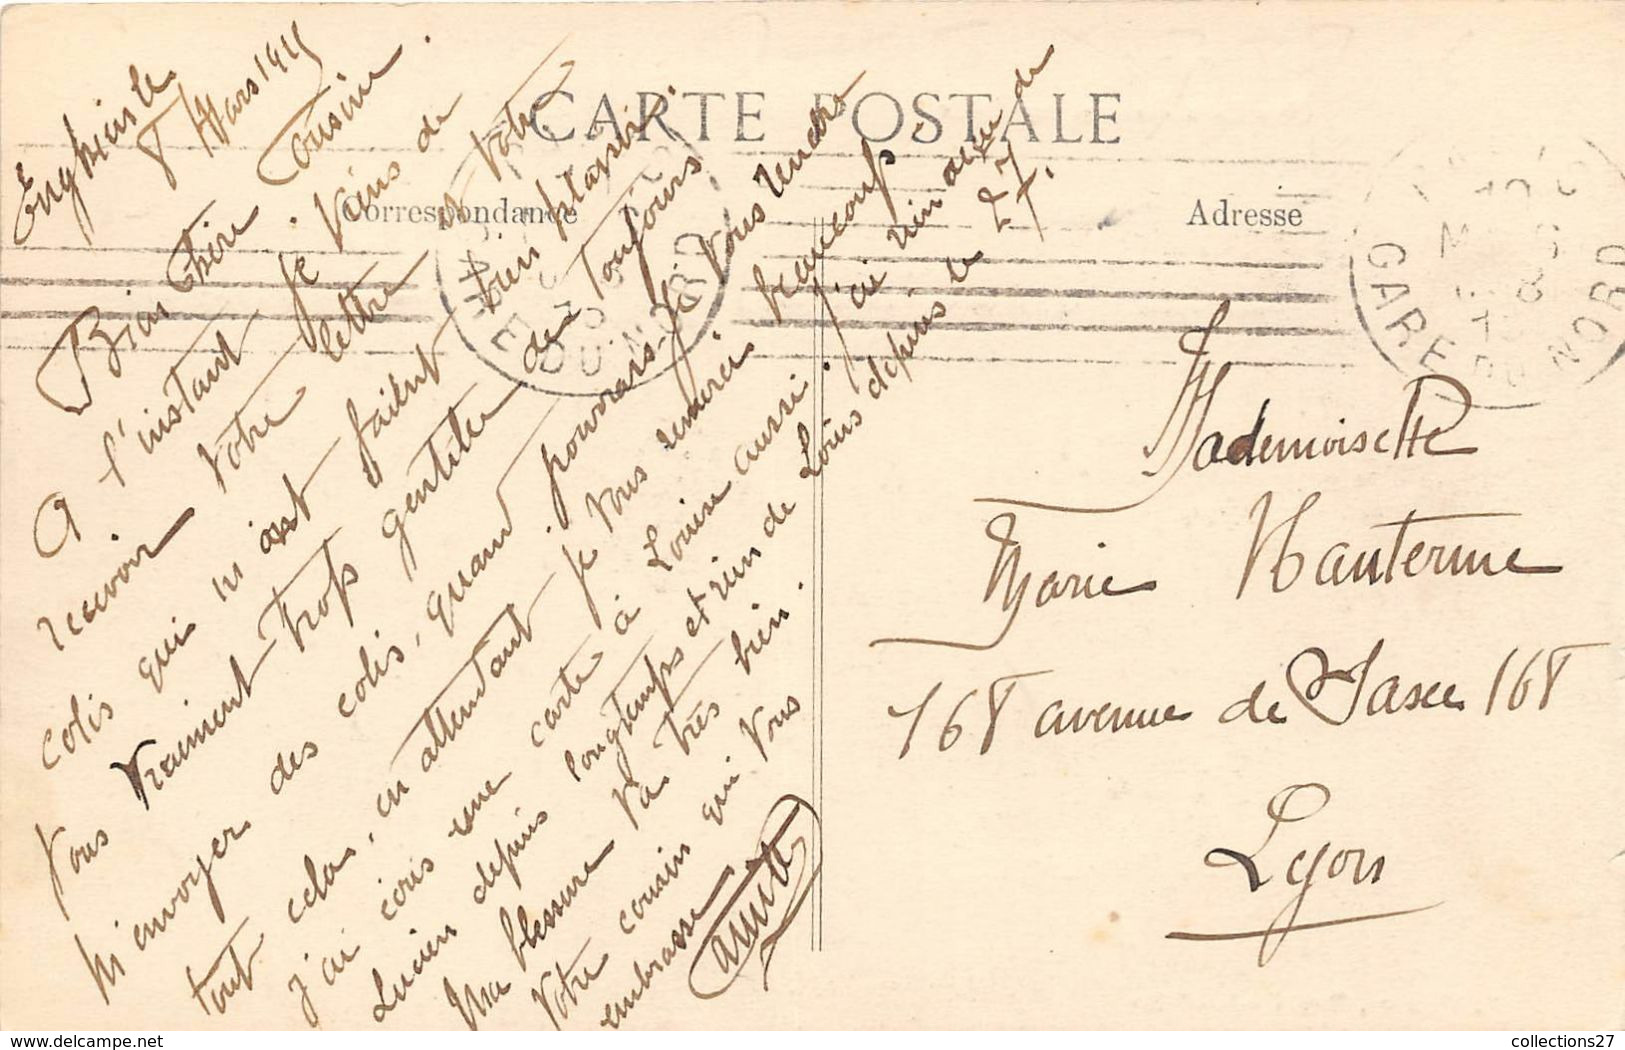 CARTE POSTALE
Correspondance
Adresse
Enghien le
8 Mars 1915
Bien Chère Cousine.
A l'instant je viens de
recevoir votre lettre et votre
colis qui m'est bien
vous vraiment trop gentille de toujours
m'envoyer des colis, quand pourrais-je vous rendre
tout cela, en attendant je vous remercie beaucoup
j'ai une carte à Louise aussi. J'ai rien de
Lucien depuis longtemps et rien de Louis depuis le 27.
Ma blessure va très bien.
Votre cousin qui vous
embrasse
GARE DU NORD
Mademoiselle
Marie Hauterme
168 avenue de Saxe 168
Lyon
collections27